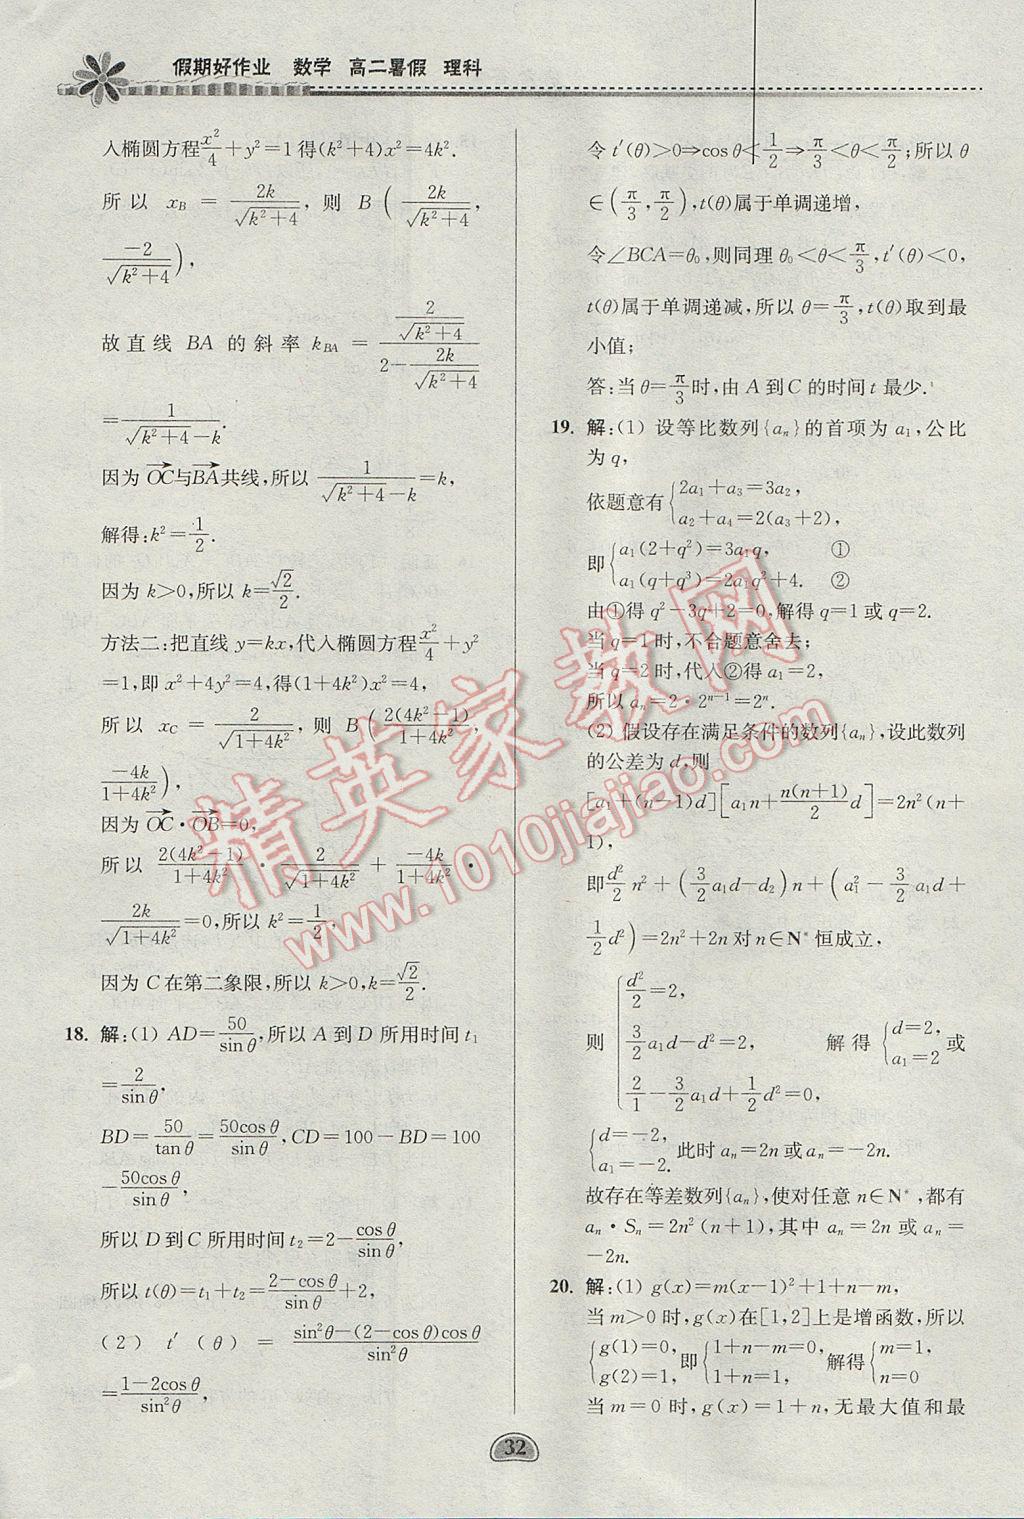 假期好作业 数学 高二暑假 理科
入椭圆方程x²/4+y²=1得(k²+4)x²=4k².
所以 x_B = 2k/√(k²+4), 则 B(2k/√(k²+4),
-2/√(k²+4)),
故直线 BA 的斜率 k_BA = (2/√(k²+4))/(2-2k/√(k²+4))
=1/(√(k²+4)-k).
因为 OC→与BA→共线,所以 1/(√(k²+4)-k)=k,
解得:k²=1/2.
因为 k>0,所以 k=√2/2.
方法二:把直线 y=kx,代入椭圆方程x²/4+y²
=1,即 x²+4y²=4,得(1+4k²)x²=4,
所以 x_C = 2/√(1+4k²), 则 B(2(4k²-1)/(1+4k²),
-4k/(1+4k²)),
因为 OC→·OB→=0,
所以 2(4k²-1)/(1+4k²) · 2/√(1+4k²) + -4k/(1+4k²) ·
2k/√(1+4k²)=0,所以 k²=1/2,
因为 C 在第二象限,所以 k>0,k=√2/2.
18. 解:(1) AD=50/sinθ,所以 A 到 D 所用时间 t₁
=2/sinθ,
BD=50/tanθ=50cosθ/sinθ,CD=100-BD=100
-50cosθ/sinθ,
所以 D 到 C 所用时间 t₂=2-cosθ/sinθ,
所以 t(θ)=t₁+t₂=(2-cosθ)/sinθ+2,
(2) t′(θ) = (sin²θ-(2-cosθ)cosθ)/sin²θ
=(1-2cosθ)/sin²θ,
令 t′(θ)>0⇒cosθ<1/2⇒π/3<θ<π/2;所以 θ
∈(π/3,π/2),t(θ)属于单调递增,
令∠BCA=θ₀,则同理 θ₀<θ<π/3,t′(θ)<0,
t(θ)属于单调递减,所以 θ=π/3,t(θ)取到最
小值;
答:当 θ=π/3时,由 A 到 C 的时间 t 最少.
19. 解:(1) 设等比数列{aₙ}的首项为 a₁,公比
为 q,
依题意有{2a₁+a₃=3a₂,
a₂+a₄=2(a₃+2),
即{a₁(2+q²)=3a₁q, ①
a₁(q+q³)=2a₁q²+4. ②
由①得 q²-3q+2=0,解得 q=1 或 q=2.
当 q=1 时,不合题意舍去;
当 q=2 时,代入②得 a₁=2,
所以 aₙ=2·2ⁿ⁻¹=2ⁿ.
(2) 假设存在满足条件的数列{aₙ},设此数列
的公差为 d,则
[a₁+(n-1)d][a₁n+n(n+1)/2 d]=2n²(n+
1),
即d²/2 n²+(3/2 a₁d-d₂)n+(a₁²-3/2 a₁d+
1/2 d²)=2n²+2n 对 n∈N*恒成立,
则 {d²/2=2,
3/2 a₁d-d²=2,
2/1-3/2 a₁d+1/2 d²=0, 解得 {d=2,
a₁=2 或
{d=-2,
a₁=-2. 此时 aₙ=2n 或 aₙ=-2n.
故存在等差数列{aₙ},使对任意 n∈N*,都有
aₙ·Sₙ=2n²(n+1),其中 aₙ=2n 或 aₙ=
-2n.
20. 解:(1) g(x)=m(x-1)²+1+n-m,
当 m>0 时,g(x)在[1,2]上是增函数,所以
{g(1)=0,
g(2)=1, 即{1+n-m=0,
1+n=1, 解得{m=1,
n=0
当 m=0 时,g(x)=1+n,无最大值和最
32
精英家教网
www.1010jiajiao.com